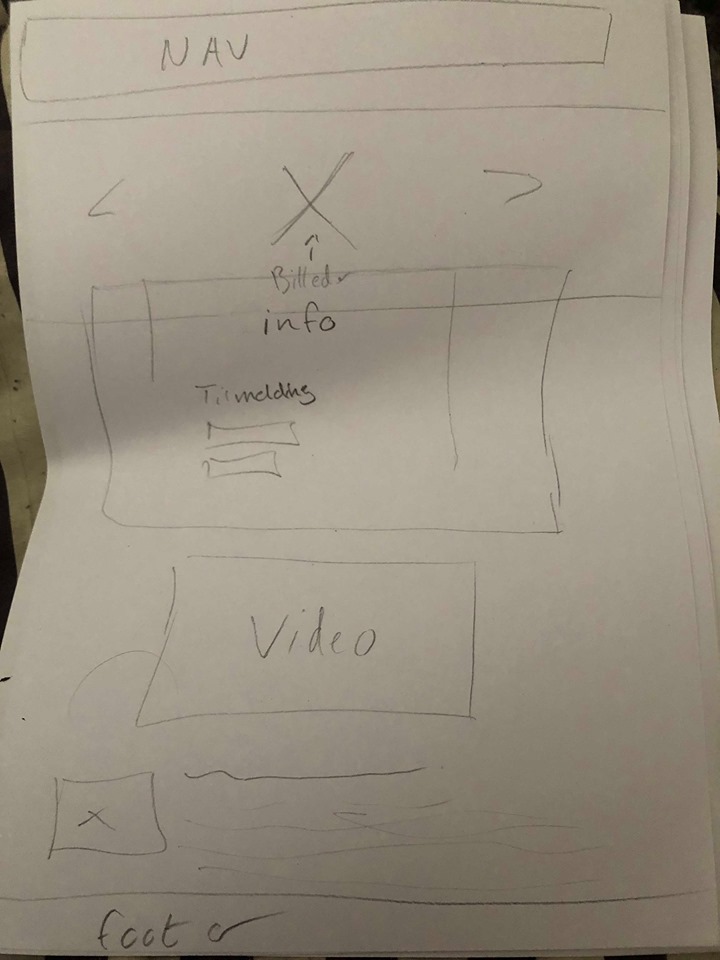 NAV
Billeder
info
Tilmelding
Video
footer